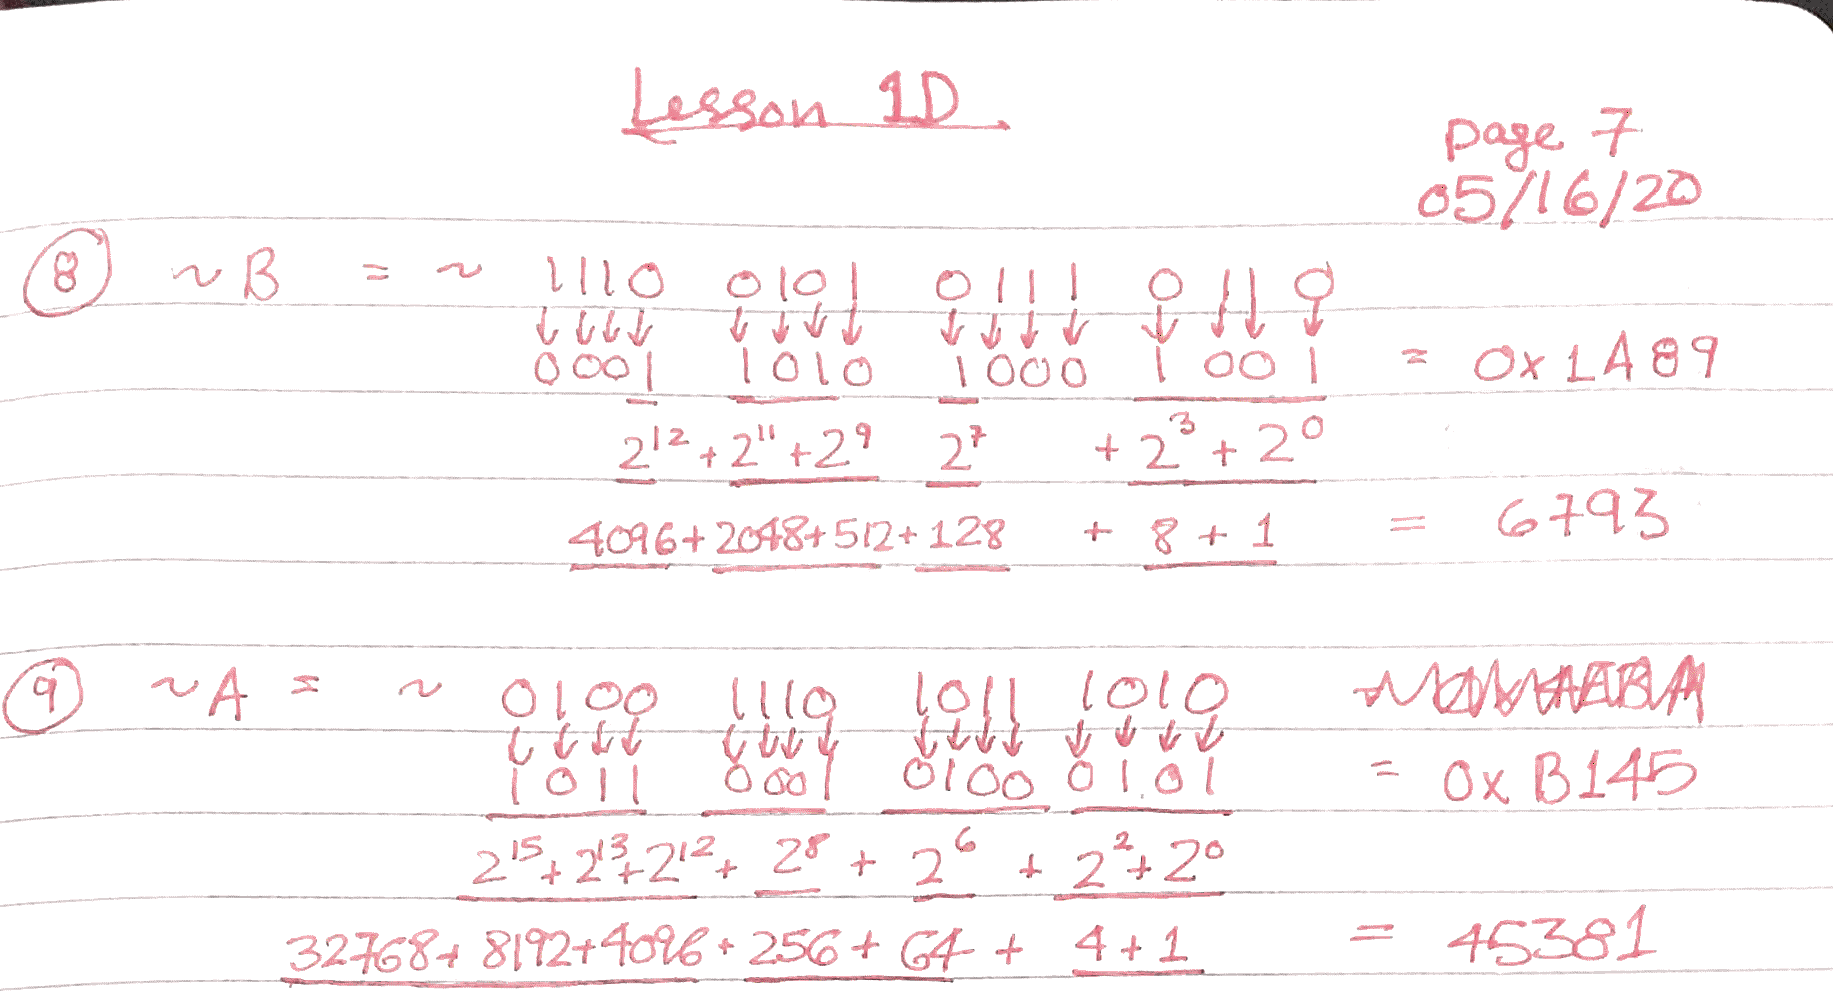 Lesson 1D
page 7
05/16/20
8 ~ B = ~ 1110 0101 0111 0110
↓↓↓↓ ↓↓↓↓ ↓↓↓↓ ↓↓↓↓
0001 1010 1000 1001 = 0x1A89
2¹² + 2¹¹ + 2⁹ 2⁷ + 2³ + 2⁰
4096 + 2048 + 512 + 128 + 8 + 1 = 6793
9 ~ A = ~ 0100 1110 1011 1010
↓↓↓↓ ↓↓↓↓ ↓↓↓↓ ↓↓↓↓
1011 0001 0100 0101 = 0xB145
2¹⁵ + 2¹³ + 2¹² + 2⁸ + 2⁶ + 2² + 2⁰
32768 + 8192 + 4096 + 256 + 64 + 4 + 1 = 45381